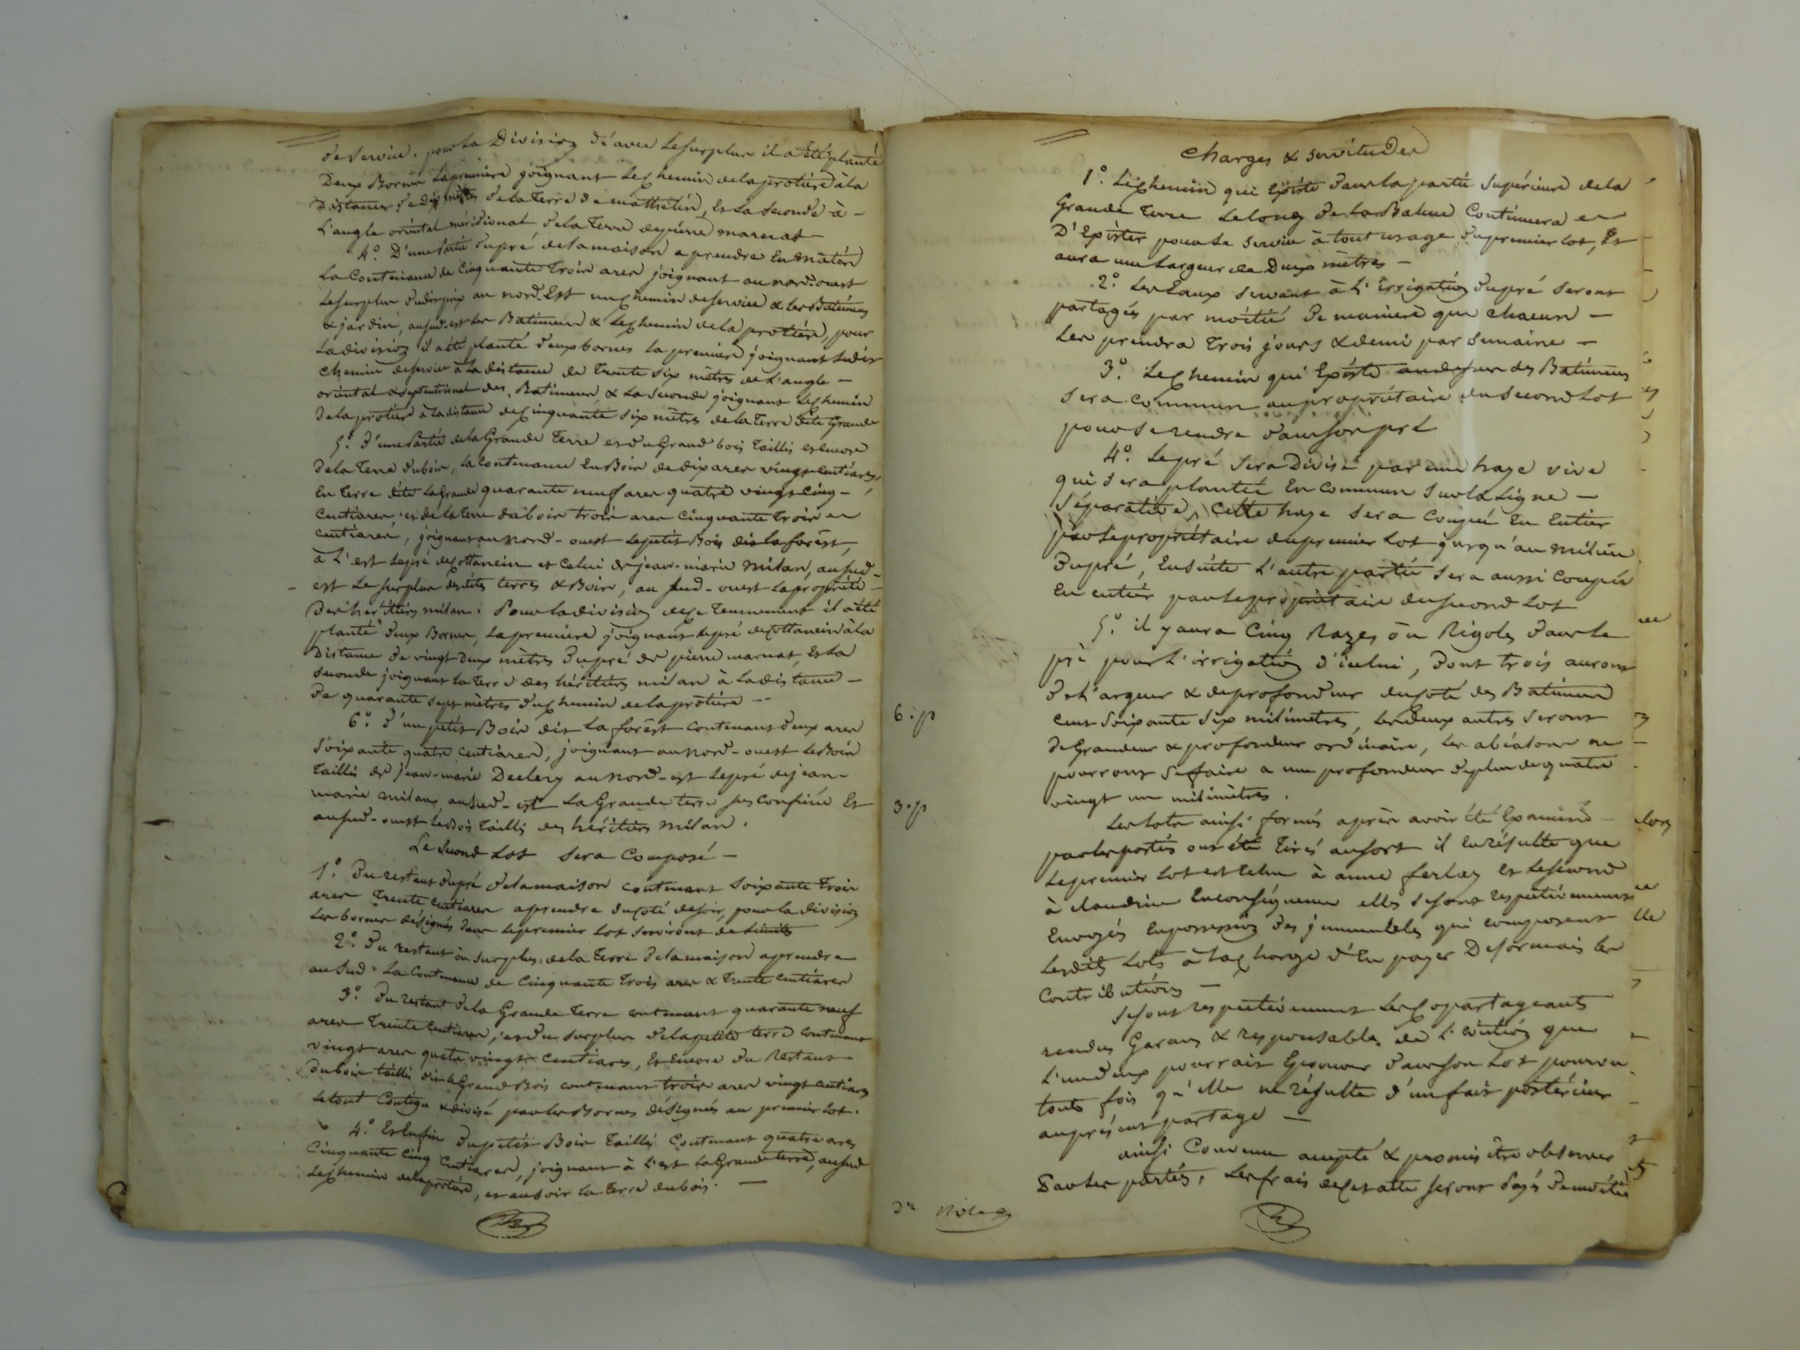 de service. pour la Division d'avec le surplus il a été planté
Deux Bornes la première joignant le chemin de la protière à la
Distance de dix mètres de la Terre de mathelin, Et la seconde à -
l'angle oriental méridional de la Terre de pierre marnat -
4.° D'une partie du pré de la maison a prendre En matin
La Contenance de Cinquante Trois ares joignant au nord-ouest
Le surplus dudit pré au nord-Est un chemin de service & les Batimens
& jardin, au sud-est les Batimens & le chemin de la protière, pour
La division il a été planté deux bornes la première joignant ledit
chemin de service à la distance de Trente six mètres de l'angle -
oriental & septentrional des Batimens, & la seconde joignant le chemin
de la protière à la distance de Cinquante six mètres de la Terre dite Grande
5.° d'une Partie de la Grande Terre et du Grand bois Taillis et encore
de la Terre du bois, la contenance En Bois de dix ares vingt centiares,
En Terre dite la Grande quarante neuf ares quatre vingt Cinq -
Centiares, et de la terre du bois trois ares cinquante trois
centiares, joignant au nord-ouest le petit Bois dit la forêst,
à l'est le pré de Cottancin et celui de jean-marie milan, au sud-
est le surplus desdites terres & Bois, au sud-ouest la propriété
Des héritiers milan. Pour la division de ce Tennement il a été
planté deux Bornes, la première joignant le pré de Cottancin à la
Distance de vingt deux mètres du pré de pierre marnat, Et la
seconde joignant la Terre des héritiers milan à la distance -
De quarante sept mètres du chemin de la protière --
6.° d'un petit Bois dit La forêst contenant deux ares
Soixante quatre centiares, joignant au nord-ouest le Bois
Taillis de jean-marie Declery au nord-est le pré de jean-
marie milan, au sud-est La Grande terre sus confinée Et
au sud-ouest le Bois Taillis des héritiers milan.
Le second Lot sera Composé -
1.° Du restant du pré de la maison contenant soixante trois
ares Trente centiares a prendre du coté de soir, pour la division
Les bornes désignés dans le premier Lot serviront de Limites
2.° Du restant ou surplus de la Terre de la maison a prendre
au Sud. La Contenance de Cinquante Trois ares & Trente Centiares
3.° Du restant de la Grande Terre contenant quarante neuf
ares Trente Centiares, et du surplus de la petite terre contenant
vingt ares quatre vingt Centiares, Et Encore du Restant
du bois taillis dit le Grand Bois contenant trois ares vingt centiares
Le tout Contigu & divisé par les Bornes désignés au premier lot.
4.° Et Enfin du petit Bois Taillis Contenant quatre ares
Cinquante Cinq Centiares, joignant à l'est la Grande terre, au sud
Le chemin de la protière, et au soir la Terre du bois. -
6.e p
3.e p
Charges & servitudes
1.° Le Chemin qui Existe dans la partie supérieure de la
Grande Terre Le long de la Balme Continuera
D'Exister pour le service à tout usage du premier lot, Et
aura une Largeur de Deux mètres -
2.° Les Eaux servant à l'irrigation du pré seront
partagés par moitié De manière que chacun -
Les prendra trois jours & demi par semaine -
3.° Le Chemin qui Existe au dessus des Batimens
sera commun au propriétaire du second Lot
pour se rendre dans son pré
4.° Le pré sera Divisé par une haye vive
qui sera plantée En commun sur la Ligne -
Séparative, Cette haye sera Coupée En Entier
par le propriétaire du premier Lot jusqu'au milieu
du pré, Ensuite l'autre partie sera aussi Coupée
En entier par le propriétaire du second Lot
5.° il y aura Cinq Razes ou Rigoles dans le
pré pour l'irrigation d'icelui, Dont trois auront
de Largeur & de profondeur du coté des Batimens
cent soixante six milimètres, les deux autres seront
de Grandeur & profondeur ordinaire, ne
pourront se faire a une profondeur de plus de quatre
vingt un milimètres.
Les Lots ainsi formés après avoir été Examiné
par les parties ont été Tirés au sort il En résulte que
Le premier Lot est échu à anne ferlay Et le second
à Claudine En conséquence elles se sont respectivement
Envoyés En possession des immeubles qui composent
Lesdits Lots à la charge d'En payer Désormais les
Contributions -
se sont respectivement Les Copartageants
rendus Garans & responsables de l'éviction que
L'une d'eux pourrait Eprouver dans son Lot pourvu
toute fois qu'elle ne résulte d'un fait postérieur
au présent partage -
ainsi Convenu accepté & promis être observer
Par les parties, Les frais de cet acte seront Payés de moitié